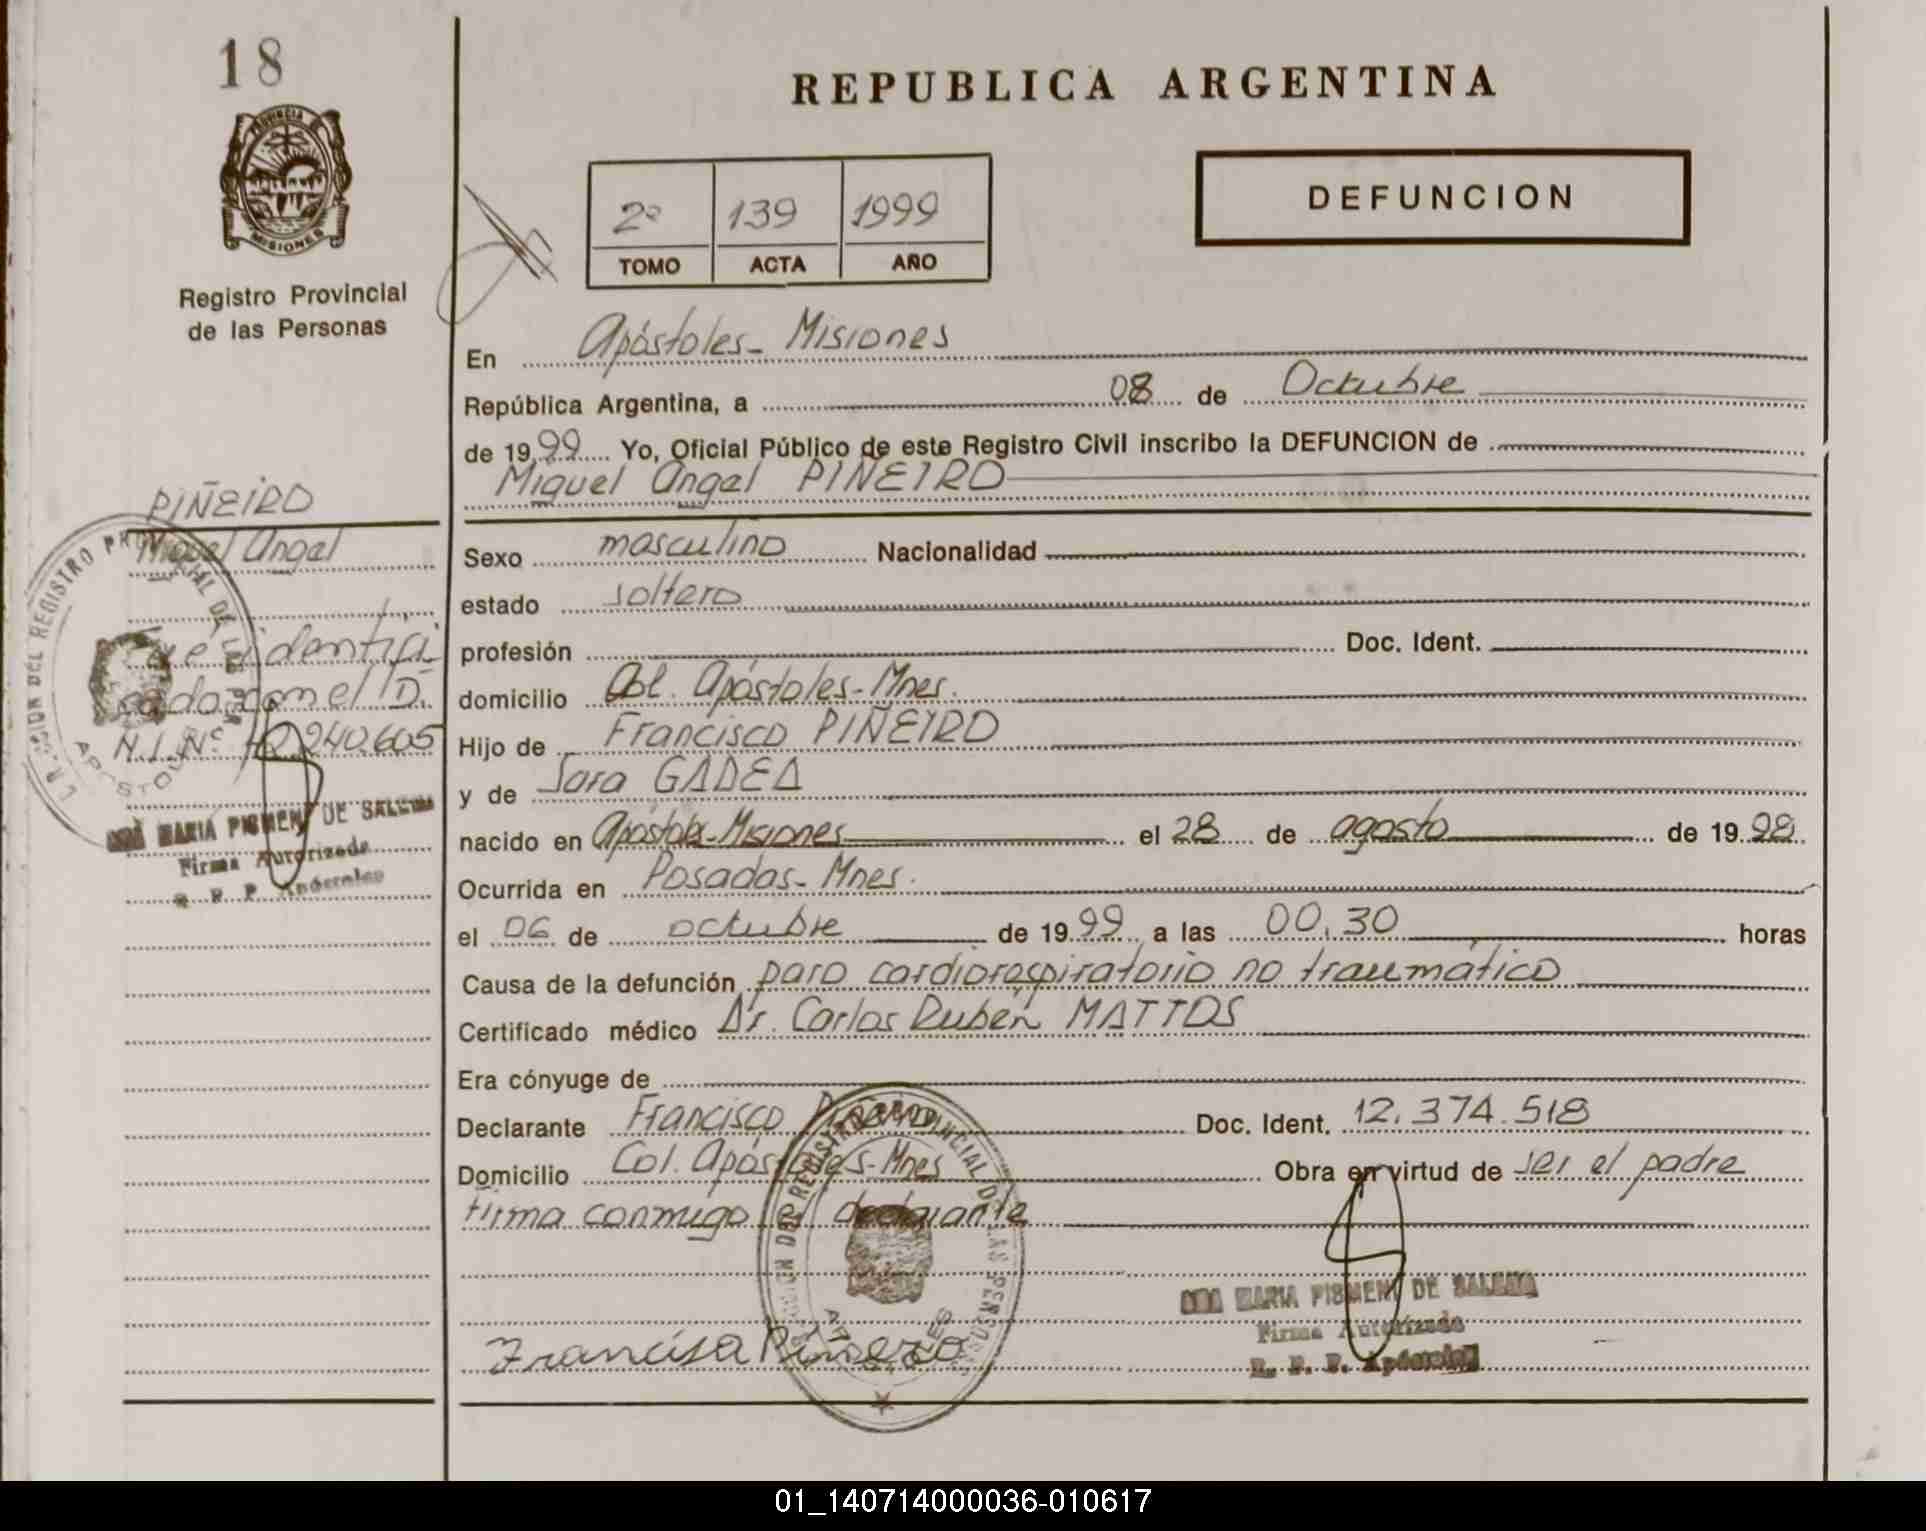 18
PROVINCIA DE
MISIONES
Registro Provincial
de las Personas
REPUBLICA ARGENTINA
DEFUNCION
2º 139 1999
TOMO ACTA AÑO
En Apóstoles - Misiones
República Argentina, a 08 de Octubre
de 1999 Yo, Oficial Público de este Registro Civil inscribo la DEFUNCION de
Miguel Angel PIÑEIRO
PIÑEIRO
Miguel Angel
Fue identifi-
cado con el D.
N.I. Nº 40.940.605
MARIA PISMENY DE SALEMA
Firma Autorizada
R. P. P. Apóstoles
Sexo masculino Nacionalidad
estado soltero
profesión Doc. Ident.
domicilio Col. Apóstoles-Mnes.
Hijo de Francisco PIÑEIRO
y de Sara GADEA
nacido en Apóstoles-Misiones el 28 de agosto de 1998
Ocurrida en Posadas-Mnes.
el 06 de octubre de 1999 a las 00,30 horas
Causa de la defunción paro cardiorespiratorio no traumático
Certificado médico Dr. Carlos Rubén MATTOS
Era cónyuge de
Declarante Francisco Piñeiro Doc. Ident. 12.374.518
Domicilio Col. Apóstoles-Mnes Obra en virtud de ser el padre
Firma conmigo el declarante
MARIA PISMENY DE SALEMA
Firma Autorizada
R. P. P. Apóstoles
01_140714000036-010617